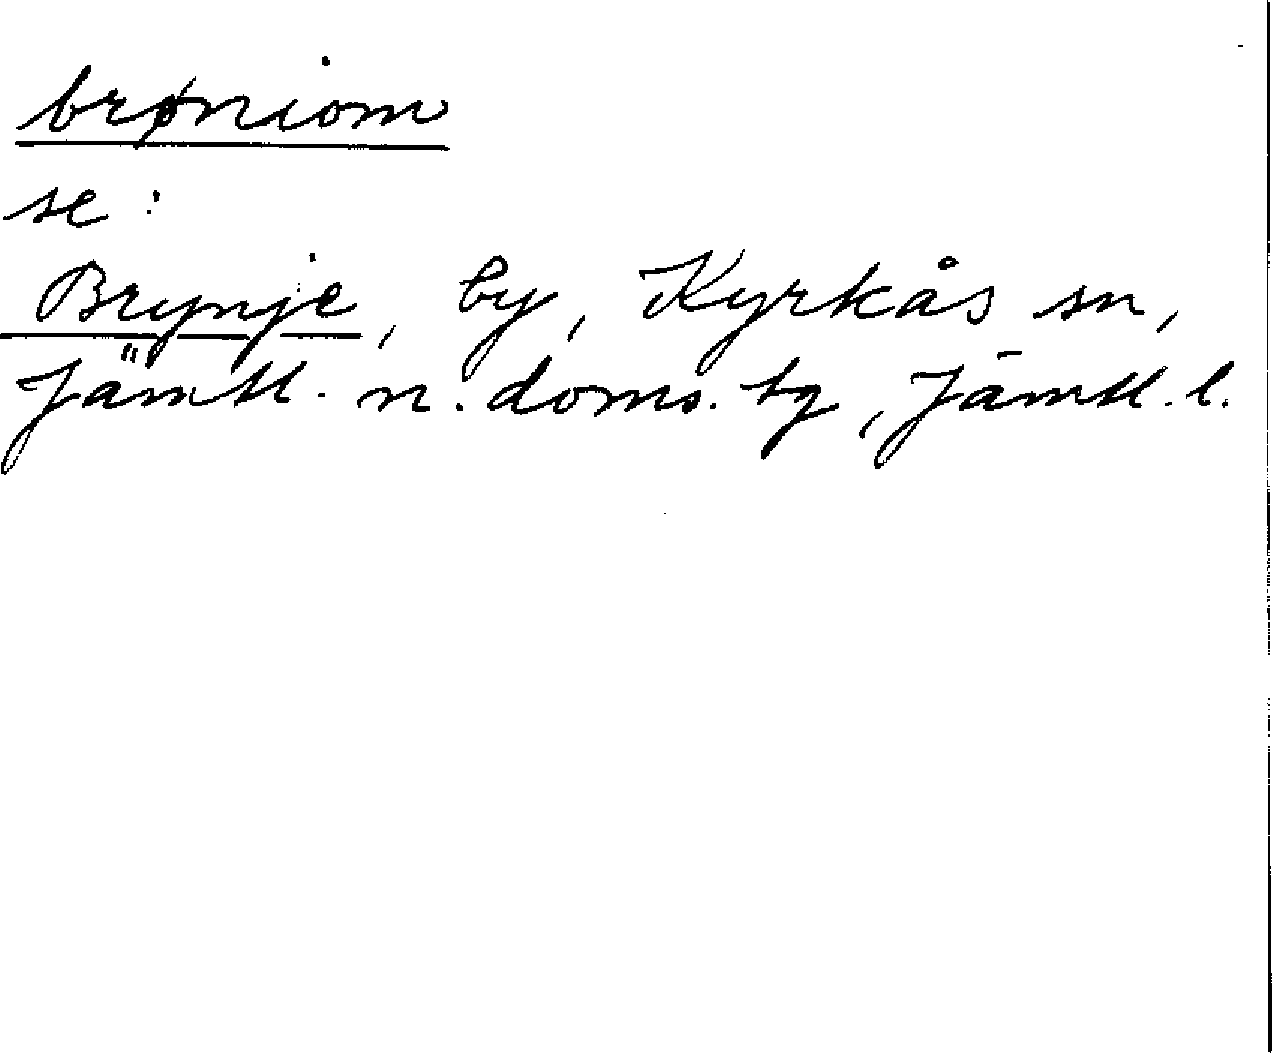 brøniom
se:
Brynje, by, Kyrkås sn,
Jämtl. n. doms. tg, Jämtl. l.